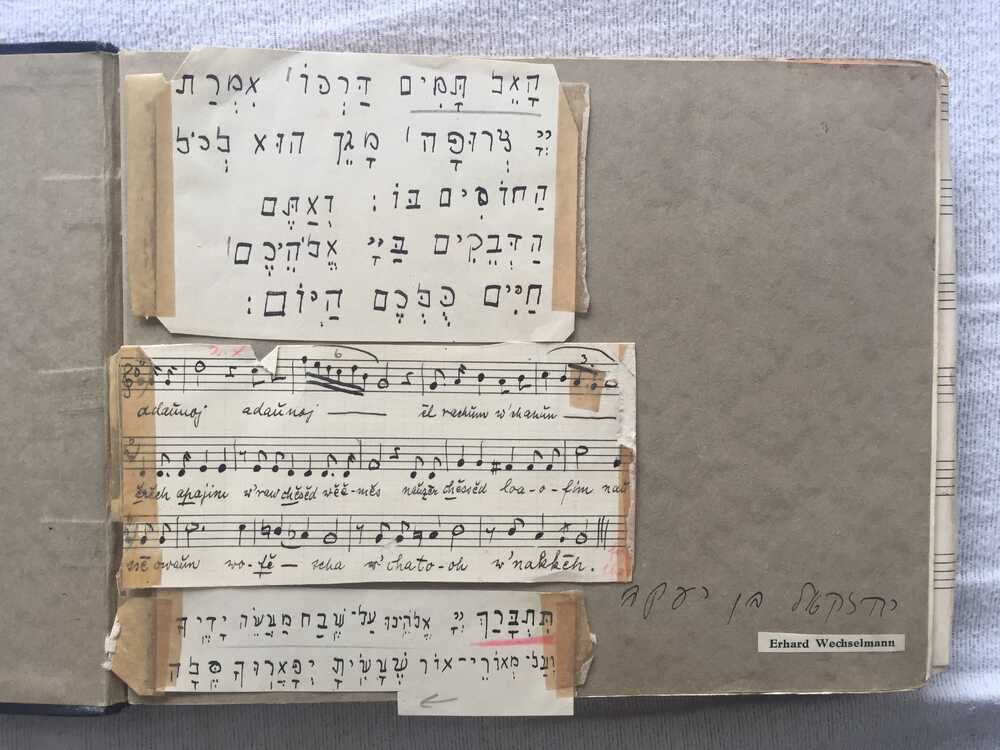 הָאֵל תָּמִים דַּרְכּוֹ' אִמְרַת
יְיָ צְרוּפָה' מָגֵן הוּא לְכֹל
הַחוֹסִים בּוֹ: וְאַתֶּם
הַדְּבֵקִים בַּיְיָ אֱלֹהֵיכֶם'
חַיִּים כֻּלְּכֶם הַיּוֹם:
6
3
adaŭnoj adaŭnoj ēl rachum w'chanun
apajim w'raw chĕsĕd wĕĕ-mĕs naŭzēr chĕssĕd loa-o-fim naŭ
sē owaŭn wo-fĕ-scha w'chato-oh w'nakkēh.
תִּתְבָּרַךְ יְיָ אֱלֹהֵינוּ עַל-שֶׁבַח מַעֲשֵׂה יָדֶיךָ
וְעַל-מְאוֹרֵי-אוֹר שֶׁעָשִׂיתָ יְפָאֲרוּךָ סֶּלָה
←
יחזקאל בן יעקב
Erhard Wechselmann